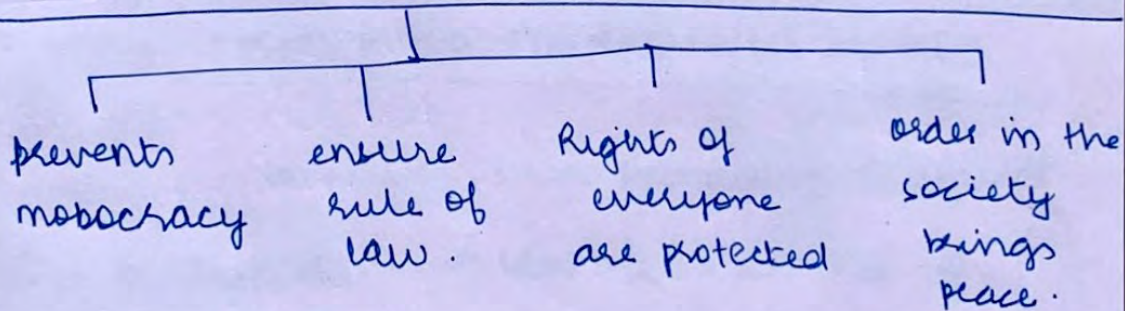 prevents
mobocracy
ensure
rule of
law.
Rights of
everyone
are protected
order in the
society
brings
peace.